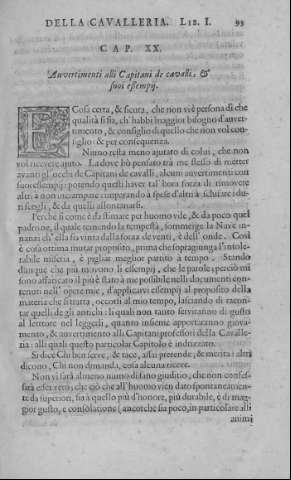 DELLA CAVALLERIA. LIB. I. 99
CAP. XX.
Auuertimenti alli Capitani de caualli, &
suoi essempij.
E Cosi certa, & sicura, che non vi è persona di che
qualità si sia, ch'habbi maggior bisogno d'auuer-
timento, & consiglio di quello che non vol con-
siglio & per consequenza.
Niuno resta meno aiutato di colui, che non
vol riceuere aiuto. La doue hò pensato trà me stesso di metter
auanti gli occhi de Capitani de caualli, alcuni auuertimenti con
suoi essempij: potendo questi hauer tal'hora forza di rimouere
altri à non incampare imparando à spese d'altri à schiuare i du-
ri scogli, & da quelli allontanarsi.
Perche si come è da stimare per huomo vile, & da poco quel
padrone, il quale temendo la tempesta, sommerge la Naue in-
nanzi ch'ella sia vinta dalla forza de venti, è dell'onde. Così
è cosa ottima mutar proposito, prima che sopragiunga l'intole-
rabile miseria, è pigliar meglior partito à tempo. Stando
dunque che più muouono li essempij, che le parole; perciò mi
sono affaticato il più è stato à me possibile nelli documenti con-
tenuti nell'opere mie, d'applicarui essempij al proposito della
materia che si tratta, occorsi al mio tempo, lasciando di raccon-
tar quelli de gli antichi: li quali non tanto seruiranno di gusto
al lettore nel leggerli, quanto insieme apporteranno gioua-
mento, & auuertimento alli Capitani professori della Caualle-
ria: alli quali questo particolar Capitolo è indrizzato.
Si dice Chi ben serue, & tace, assai pretende; & merita i altri
dicono, Chi non dimanda, cosa alcuna riceue.
Non vi sarà almeno niuno di sano giuditio, che non confes-
sarà esser vero; che ciò che all'huomo vien dato spontaneamen-
te da superiori, sia à quello più d'honore, più durabile, è di mag-
gior gusto, e consolatione (ancorche sia poco, in particolare alli
animi